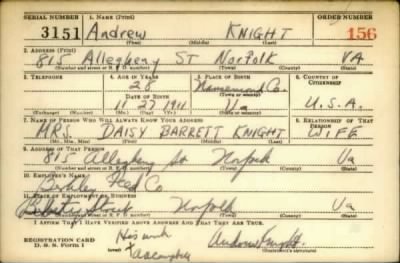 SERIAL NUMBER 1. NAME (Print) ORDER NUMBER
3151 Andrew KNIGHT 156
(First) (Middle) (Last)
2. ADDRESS (Print)
815 Allegheny ST Norfolk VA
(Number and street or R. F. D. number) (Town) (County) (State)
3. TELEPHONE 4. AGE IN YEARS 5. PLACE OF BIRTH 6. COUNTRY OF CITIZENSHIP
28 Nansemond Co.
DATE OF BIRTH
11 27 1911 Va U.S.A.
(Exchange) (Number) (Mo.) (Day) (Yr.) (State or country)
7. NAME OF PERSON WHO WILL ALWAYS KNOW YOUR ADDRESS 8. RELATIONSHIP OF THAT PERSON
MRS. DAISY BARRETT KNIGHT WIFE
(Mr., Mrs., Miss) (First) (Middle) (Last)
9. ADDRESS OF THAT PERSON
815 Allegheny St Norfolk Va
(Number and street or R. F. D. number) (Town) (County) (State)
10. EMPLOYER'S NAME
Co
11. PLACE OF EMPLOYMENT OR BUSINESS
Norfolk Va
(Number and street or R. F. D. number) (Town) (County) (State)
I AFFIRM THAT I HAVE VERIFIED ABOVE ANSWERS AND THAT THEY ARE TRUE.
REGISTRATION CARD
D. S. S. Form 1
His mark
Andrew Knight